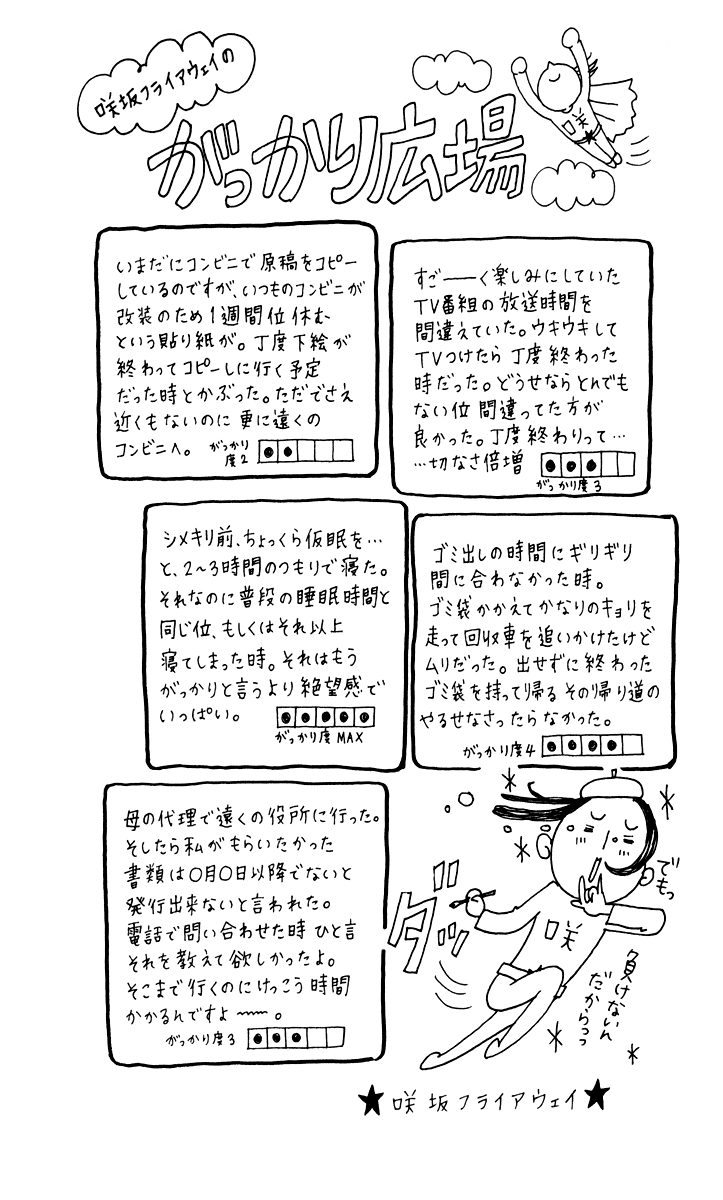 咲坂フライアウェイの
がっかり広場
咲
いまだにコンビニで原稿をコピー
しているのですが、いつものコンビニが
改装のため1週間位休む
という貼り紙が。丁度下絵が
終わってコピーしに行く予定
だった時とかぶった。ただでさえ
近くもないのに更に遠くの
コンビニへ。
がっかり
度2
すご——く楽しみにしていた
TV番組の放送時間を
間違えていた。ウキウキして
TVつけたら丁度終わった
時だった。どうせならとんでも
ない位間違ってた方が
良かった。丁度終わりって…
…切なさ倍増
がっかり度3
シメキリ前、ちょっくら仮眠を…
と、2〜3時間のつもりで寝た。
それなのに普段の睡眠時間と
同じ位、もしくはそれ以上
寝てしまった時。それはもう
がっかりと言うより絶望感で
いっぱい。
がっかり度MAX
ゴミ出しの時間にギリギリ
間に合わなかった時。
ゴミ袋かかえてかなりのキョリを
走って回収車を追いかけたけど
ムリだった。出せずに終わった
ゴミ袋を持って帰るその帰り道の
やるせなさったらなかった。
がっかり度4
母の代理で遠くの役所に行った。
そしたら私がもらいたかった
書類は〇月〇日以降でないと
発行出来ないと言われた。
電話で問い合わせた時ひと言
それを教えて欲しかったよ。
そこまで行くのにけっこう時間
かかるんですよ〜〜。
がっかり度3
ダッ
咲
でもっ
負けないん
だからっっ
★咲坂フライアウェイ★